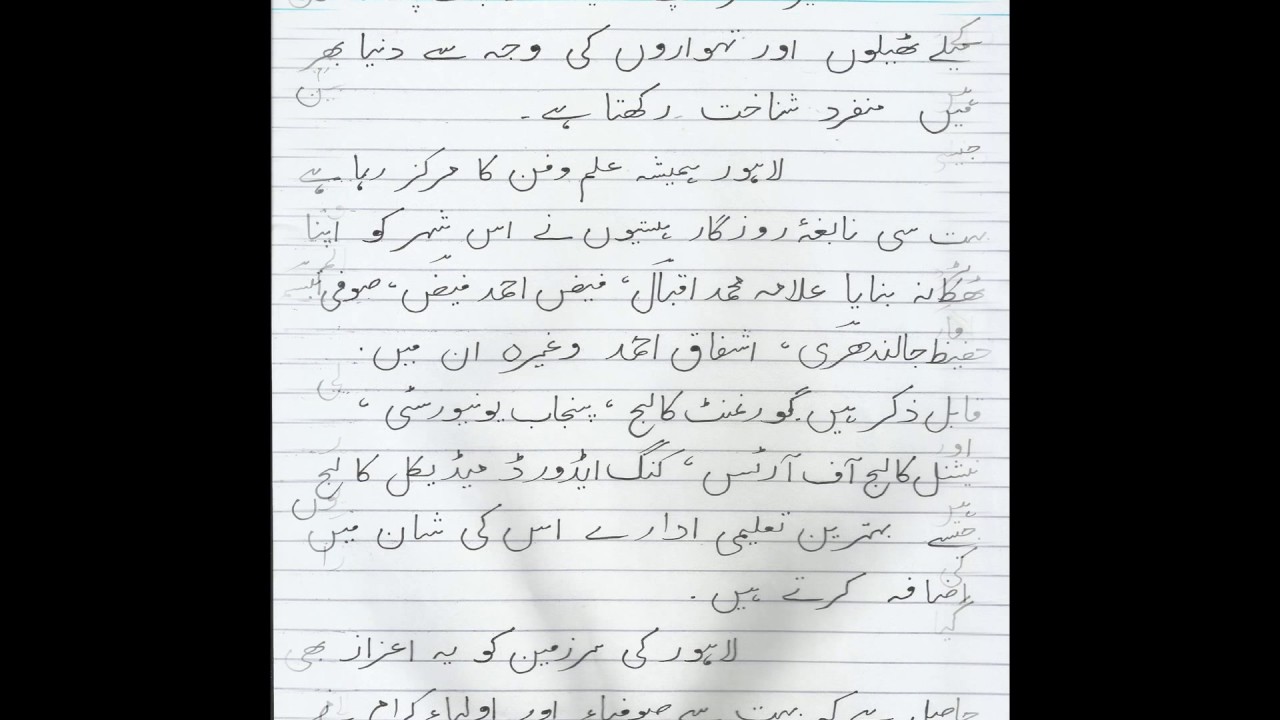 میلے ٹھیلوں اور تہواروں کی وجہ سے دنیا بھر
میں منفرد شناخت رکھتا ہے۔
لاہور ہمیشہ علم وفن کا مرکز رہا ہے
بہت سی نابغۂ روزگار ہستیوں نے اس شہر کو اپنا
ٹھکانہ بنایا علامہ محمد اقبالؔ، فیض احمد فیضؔ، صوفی
حفیظ جالندھریؔ، اشفاق احمد وغیرہ ان میں
قابل ذکر ہیں۔ گورنمنٹ کالج، پنجاب یونیورسٹی،
نیشنل کالج آف آرٹس، کنگ ایڈورڈ میڈیکل کالج
جیسے بہترین تعلیمی ادارے اس کی شان میں
اضافہ کرتے ہیں۔
لاہور کی سرزمین کو یہ اعزاز بھی
حاصل ہے کہ بہت سے صوفیاء اور اولیاء کرام